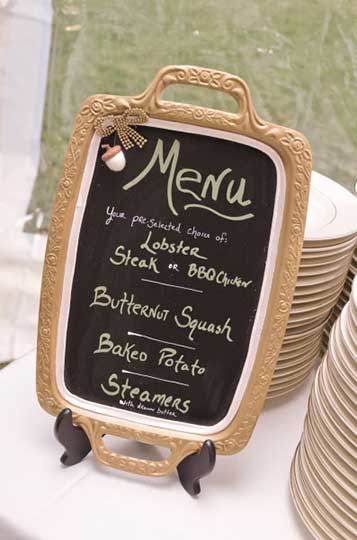 Menu
Your pre-selected choice of:
Lobster
Steak or BBQ Chicken
Butternut Squash
Baked Potato
Steamers
with drawn butter